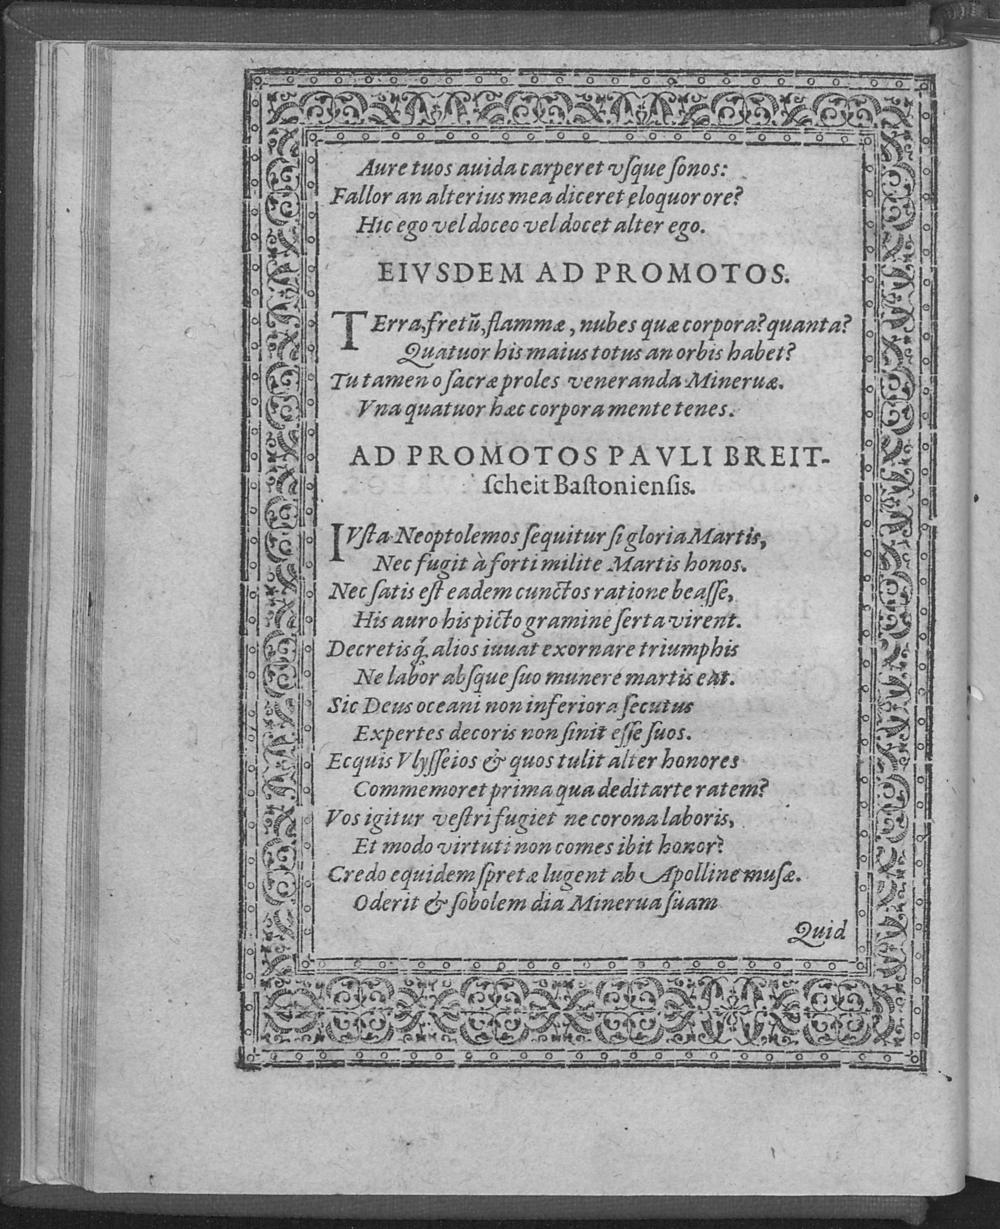 Aure tuos auida carperet vſque ſonos:
Fallor an alterius mea diceret eloquor ore?
Hic ego vel doceo vel docet alter ego.
EIVSDEM AD PROMOTOS.
TErra, fretū, flammæ, nubes quæ corpora? quanta?
Quatuor his maius totus an orbis habet?
Tu tamen o ſacræ proles veneranda Mineruæ.
Vna quatuor hæc corpora mente tenes.
AD PROMOTOS PAVLI BREIT-
ſcheit Baſtonienſis.
IVſta Neoptolemos ſequitur ſi gloria Martis,
Nec fugit à forti milite Martis honos.
Nec ſatis eſt eadem cunctos ratione beaſſe,
His auro his picto gramine ſerta virent.
Decretisq́; alios iuuat exornare triumphis
Ne labor abſque ſuo munere martis eat.
Sic Deus oceani non inferiora ſecutus
Expertes decoris non ſinit eſſe ſuos.
Ecquis Vlyſſeios & quos tulit alter honores
Commemoret prima qua dedit arte ratem?
Vos igitur veſtri fugiet ne corona laboris,
Et modo virtuti non comes ibit honor?
Credo equidem ſpretæ lugent ab Apolline muſæ.
Oderit & ſobolem dia Minerua ſuam
Quid